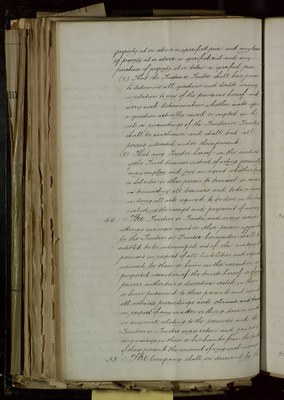 property at or above a specified price and any lease
of property at or above a specified rent and any
purchase of property at or below a specified price
That the Trustees or Trustee shall have power
to determine all questions and doubts arising
in relation to any of the provisions hereof and
every such determination whether made upon
a question actually raised or implied in the
acts or proceedings of the Trustees or Trustee
shall be conclusive and shall bind all
persons interested under these presents
That any Trustee hereof in the conduct
of the Trust business instead of acting personally
may employ and pay an agent whether being
a solicitor or other person to transact or concur
in transacting all business and to do or concur
in doing all acts required to be done in the
including the receipt and payment of money
The Trustees or Trustee and every
attorney manager agent or other person appointed
by the Trustees or Trustee hereunder shall be
entitled to be indemnified out of the
premises in respect of all liabilities and expenses
incurred by them or him in the execution or
purported execution of the trusts hereof or of any
powers authorities or discretions vested in them
or him pursuant to these presents and against
all actions proceedings costs claims and demands
in respect of any matter or thing done or omitted
in any wise relating to the premises and the
Trustees or Trustee may retain and pay out of
any moneys in their or his hands
of these presents the amount of any such
The Company shall on demand by the